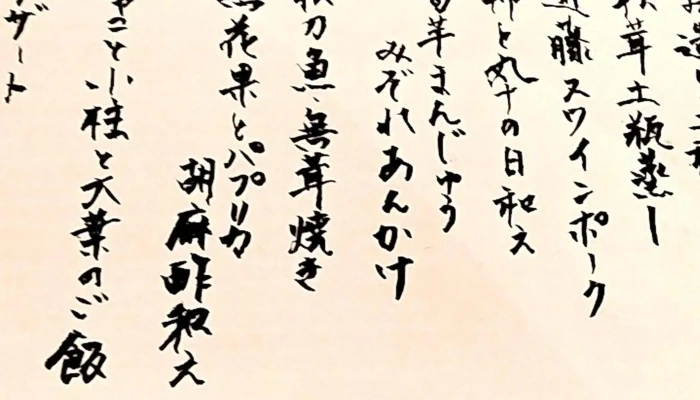 茸土瓶蒸し
近藤スワインポーク
柿と丸十の白和え
芋まんじゅう
みぞれあんかけ
刀魚舞茸焼き
花果とパプリカ
胡麻酢和え
こと小柱と大葉のご飯
ザート